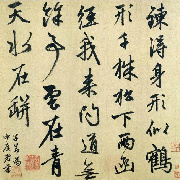 鍊得身形似鶴
形千株松下兩函
經我来問道無
餘雲在青
天水在缾
子昂為